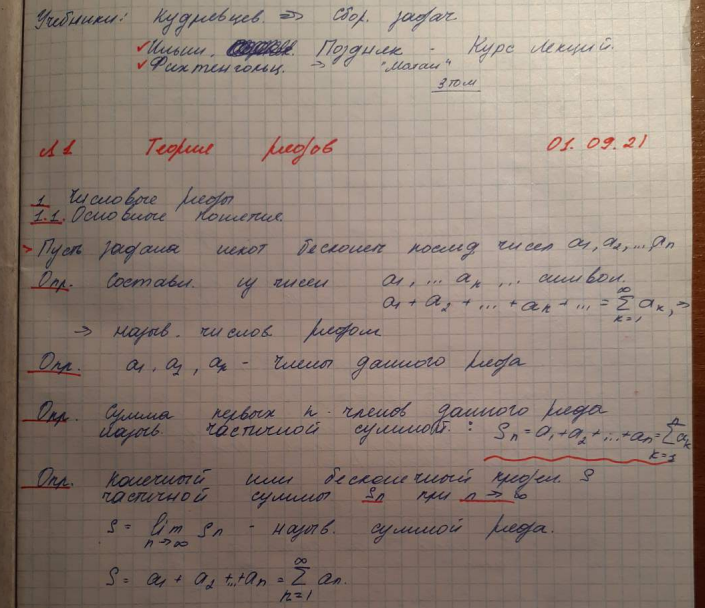 Учебники: Кудрявцев. => Сбор. задач
✓Ильин, Поздняк - Курс Лекций.
✓Фихтенгольц. -> "Матан"
3 том
Л1 Теория рядов 01.09.21
1 Числовые ряды
1.1. Основные понятия.
> Пусть задана некот бесконеч послед чисел a1, a2, ..., an
Опр. Составл. из чисел a1, ... an, .. символ.
a1 + a2 + ... + an + ... = ∑_{k=1}^{∞} ak, =>
-> назыв. числов рядом
Опр. a1, a2, an - члены данного ряда
Опр. Сумма первых n-членов данного ряда
назыв. частичной суммой: Sn = a1 + a2 + ... + an = ∑_{k=1}^{n} ak
Опр. конечный или бесконечный предел S
частичной суммы Sn при n -> ∞
S = lim_{n->∞} Sn - назыв. суммой ряда.
S = a1 + a2 + ... + an = ∑_{n=1}^{∞} an.